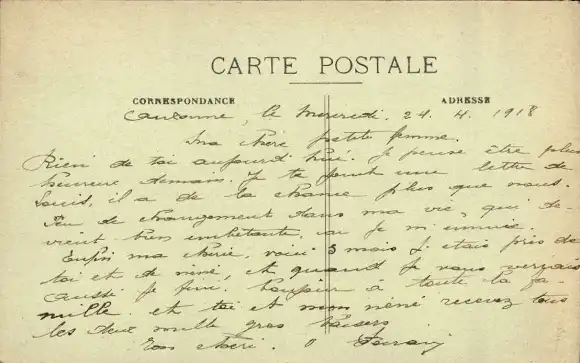 CARTE POSTALE
CORRESPONDANCE
ADRESSE
Auxonne, le Mercredi. 24. 4. 1918
Ma chère petite femme.
Rien de toi aujourd'hui. Je pense être plus
heureux demain. Je te une lettre de
Louis, il a de la chance plus que nous.
Peu de changement dans ma vie, qui de-
vient bien embêtante, car je m'ennuie.
Enfin ma chérie, voici 3 mois j'étais près de
toi et de néné, et quand je vous
aussi je Bonjour à toute la fa-
mille. et toi et mon néné recevez tous
les deux mille gros baisers
Ton chéri.